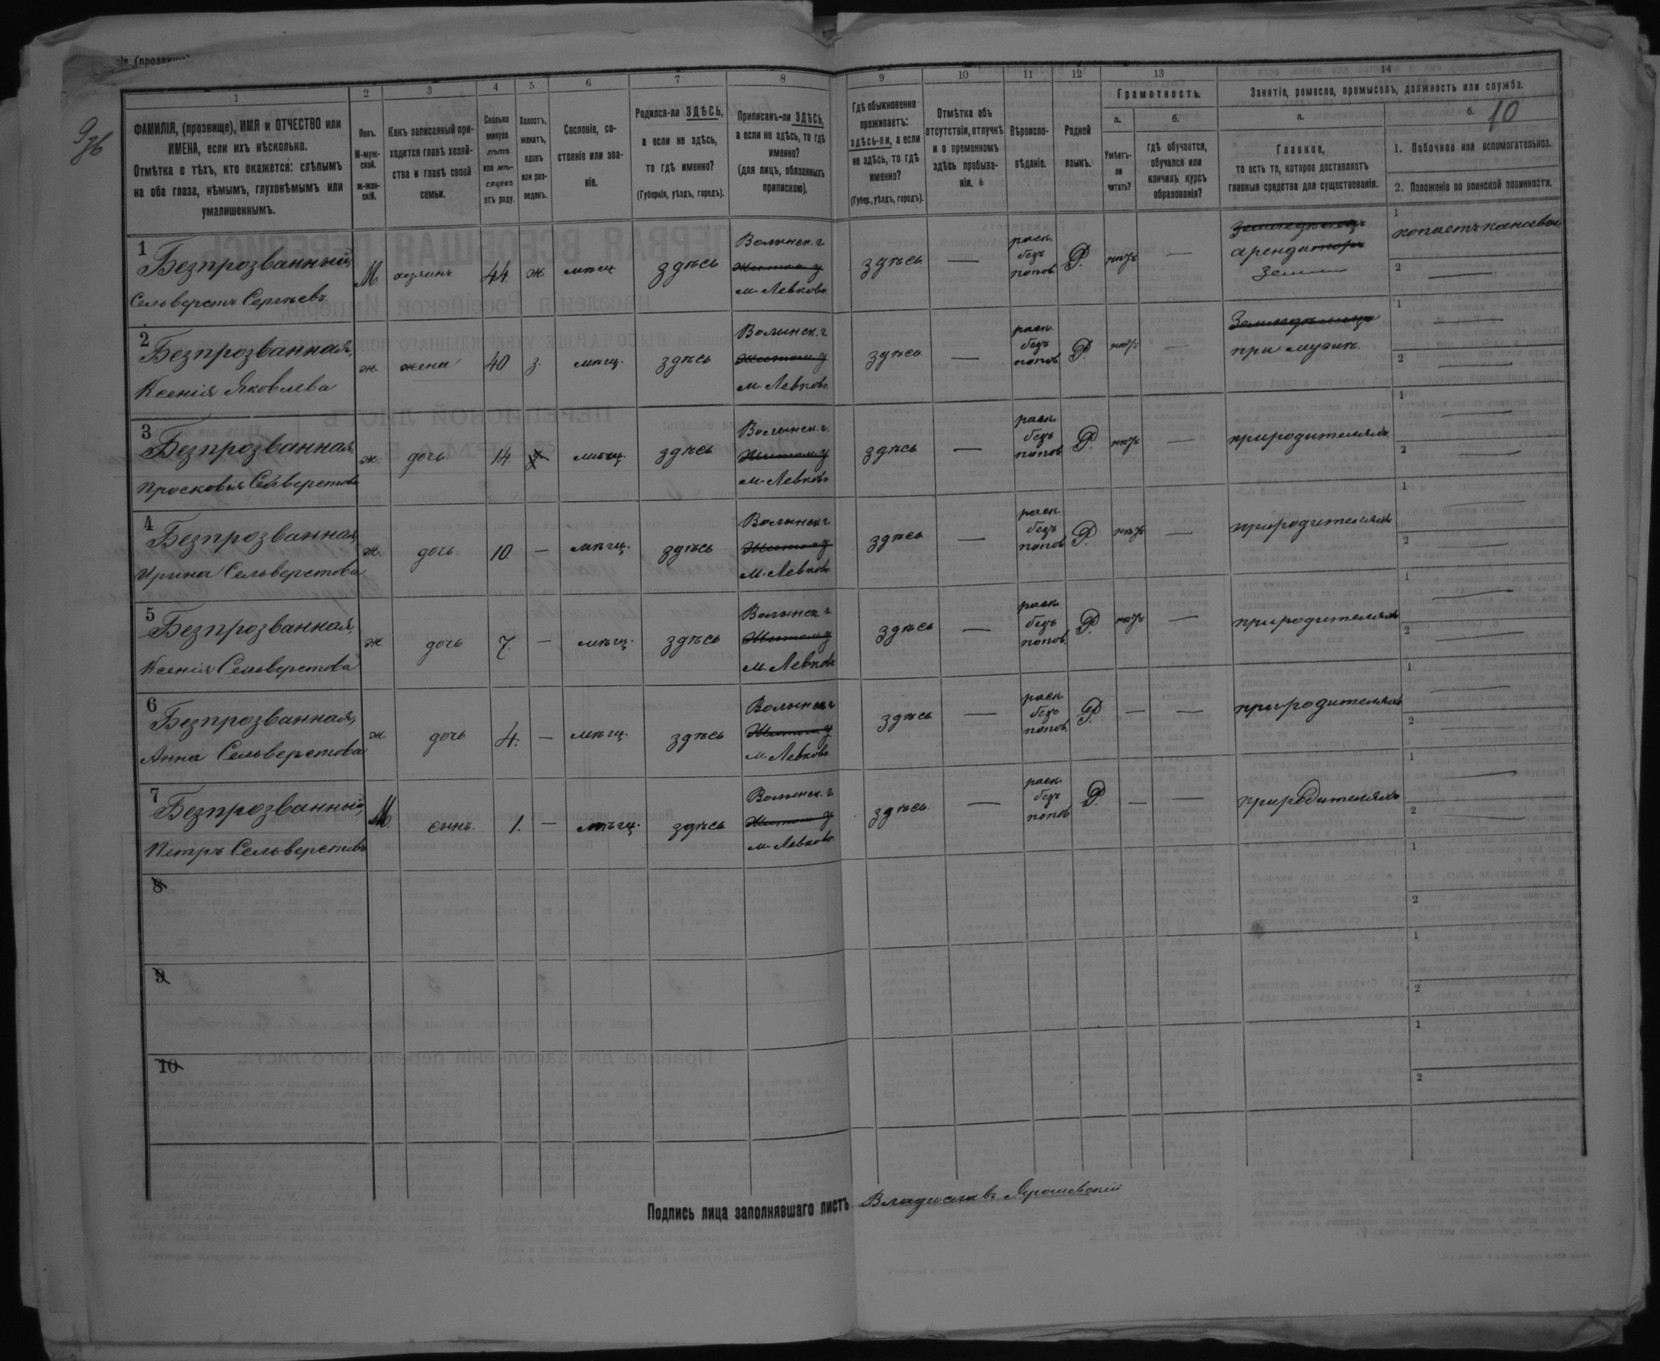 1 2 3 4 5 6 7 8 9 10 11 12 13 14
ФАМИЛІЯ, (прозвище), ИМЯ и ОТЧЕСТВО или
ИМЕНА, если ихъ нѣсколько.
Отмѣтка о тѣхъ, кто окажется: слѣпымъ
на оба глаза, нѣмымъ, глухонѣмымъ или
умалишеннымъ.
Полъ.
М-муж-
ской.
ж-жен-
скій.
Какъ записанный при-
ходится главѣ хозяй-
ства и главѣ своей
семьи.
Сколько
минуло
лѣтъ
или мѣ-
сяцевъ
отъ роду.
Холостъ,
женатъ,
вдовъ
или раз-
веденъ.
Сословіе, со-
стояніе или зва-
ніе.
Родился-ли ЗДѢСЬ,
а если не здѣсь,
то гдѣ именно?
(Губернія, уѣздъ, городъ).
Приписанъ-ли ЗДѢСЬ,
а если не здѣсь, то гдѣ
именно?
(для лицъ, обязанныхъ
припискою).
Гдѣ обыкновенно
проживаетъ:
здѣсь-ли, а если
не здѣсь, то гдѣ
именно?
(Губер., уѣздъ, городъ).
Отмѣтка объ
отсутствіи, отлучкѣ
и о временномъ
здѣсь пребыва-
ніи.
Вѣроиспо-
вѣданіе.
Родной
языкъ.
Грамотность.
а.
Умѣетъ-
ли
читать?
б.
гдѣ обучается,
обучался или
кончилъ курсъ
образованія?
Занятія, ремесло, промыселъ, должность или служба.
а.
Главное,
то есть то, которое доставляетъ
главныя средства для существованія.
б.
10
1. Побочное или вспомогательное.
2. Положеніе по воинской повинности.
1
Безпрозванный
Сельверстъ Сергѣевъ
М. хозяинъ 44. ж. мѣщ. здѣсь
Волынск. г.
м. Левково
здѣсь —
раск.
безъ
попов.
Р. нѣтъ —
Земледѣлецъ
арендаторъ
земли
1 копаетъ канавы
2 —
2
Безпрозванная,
Ксенія Яковлева
ж. жена 40 з. мѣщ. здѣсь
Волынск. г.
м. Левково
здѣсь —
раск.
безъ
попов.
Р. нѣтъ —
при мужѣ.
1 —
2 —
3
Безпрозванная
Просковія Сельверстова
ж. дочь 14. мѣщ. здѣсь
Волынск. г.
м. Левково
здѣсь —
раск.
безъ
попов.
Р. нѣтъ —
при родителяхъ
1 —
2 —
4
Безпрозванная,
Ирина Сельверстова
ж. дочь 10 — мѣщ. здѣсь
Волынск. г.
м. Левково
здѣсь —
раск.
безъ
попов.
Р. нѣтъ —
при родителяхъ
1 —
2 —
5
Безпрозванная,
Ксенія Сельверстова
ж. дочь 7. — мѣщ. здѣсь
Волынск. г.
м. Левково
здѣсь —
раск.
безъ
попов.
Р. нѣтъ —
при родителяхъ
1 —
2 —
6
Безпрозванная,
Анна Сельверстова
ж. дочь 4. — мѣщ. здѣсь
Волынск. г.
м. Левково
здѣсь —
раск.
безъ
попов.
Р. — —
при родителяхъ
1 —
2 —
7
Безпрозванный,
Петръ Сельверстовъ
М. сынъ. 1. — мѣщ. здѣсь
Волынск. г.
м. Левково
здѣсь —
раск.
безъ
попов.
Р. — —
при родителяхъ
1 —
2 —
8
1
2
9
1
2
10
1
2
Подпись лица заполнявшаго листъ Владиславъ Ярошевскій